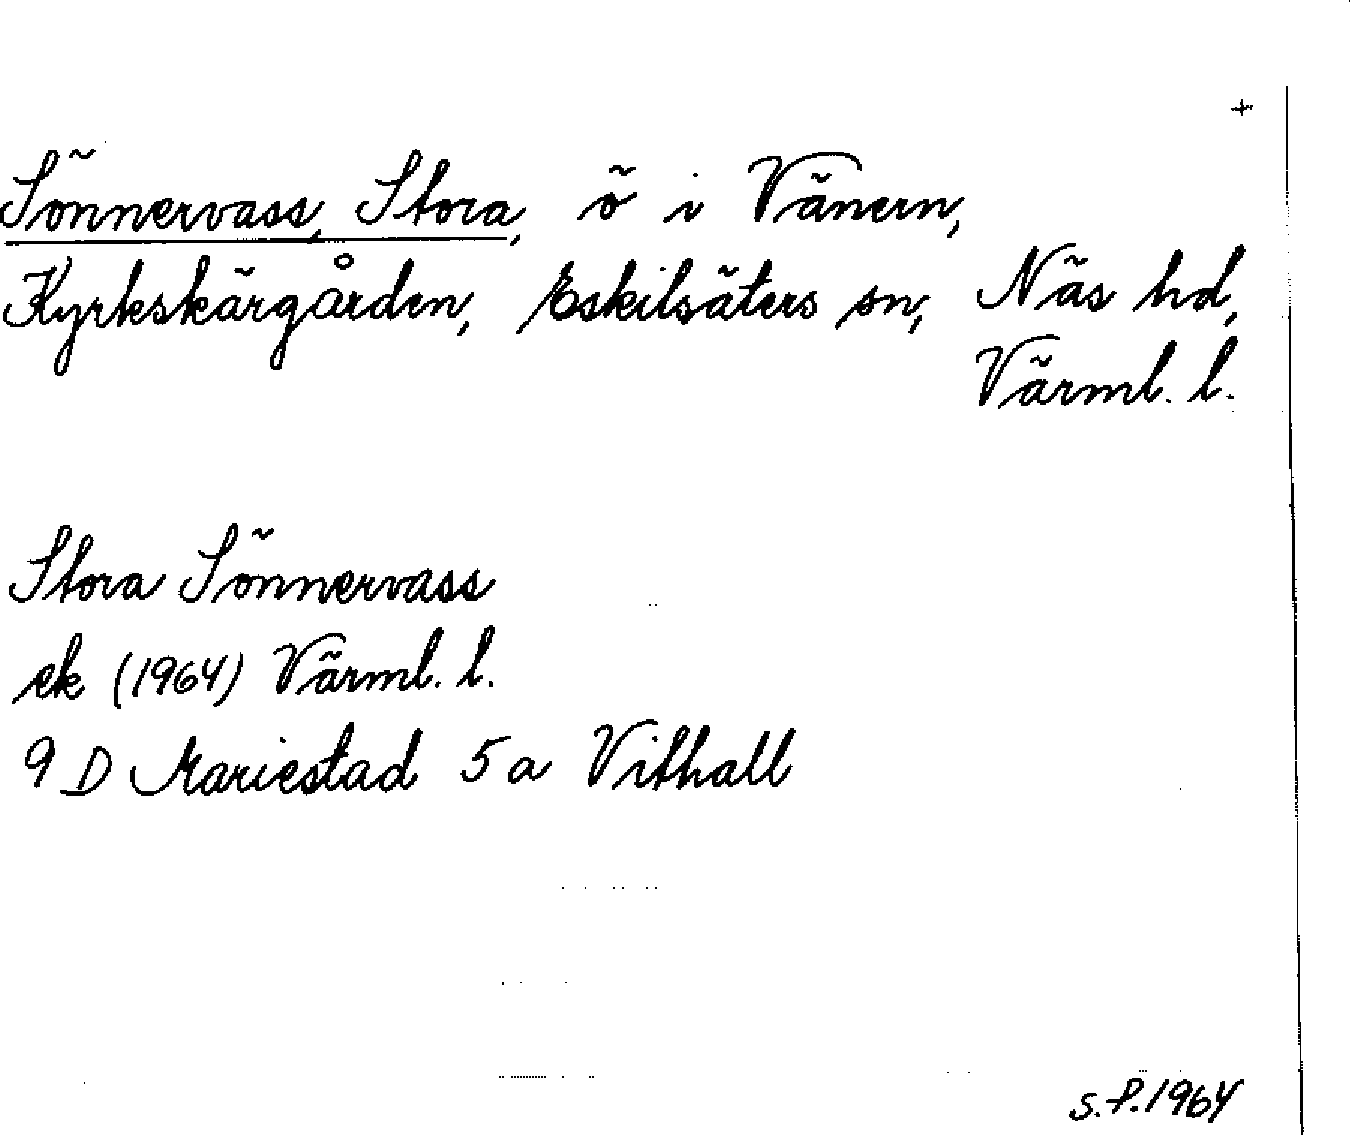 +
Sönnervass, Stora, ö i Vänern,
Kyrkskärgården, Eskilsäters sn, Näs hd,
Värml. l.
Stora Sönnervass
ek (1964) Värml. l.
9 D Mariestad 5 a Vithall
S.P. 1964